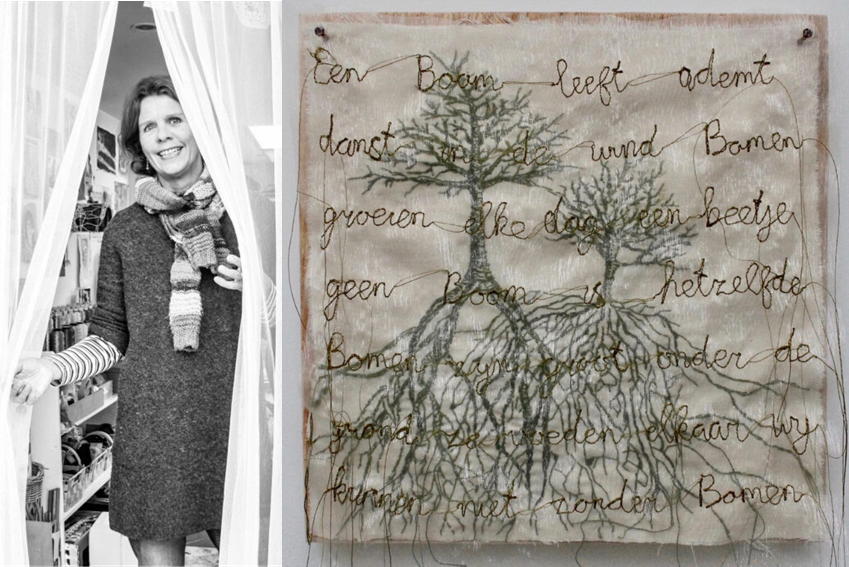 Een Boom leeft ademt
danst in de wind Bomen
groeien elke dag een beetje
geen Boom is hetzelfde
Bomen zijn groot onder de
grond ze voeden elkaar wij
kunnen niet zonder Bomen